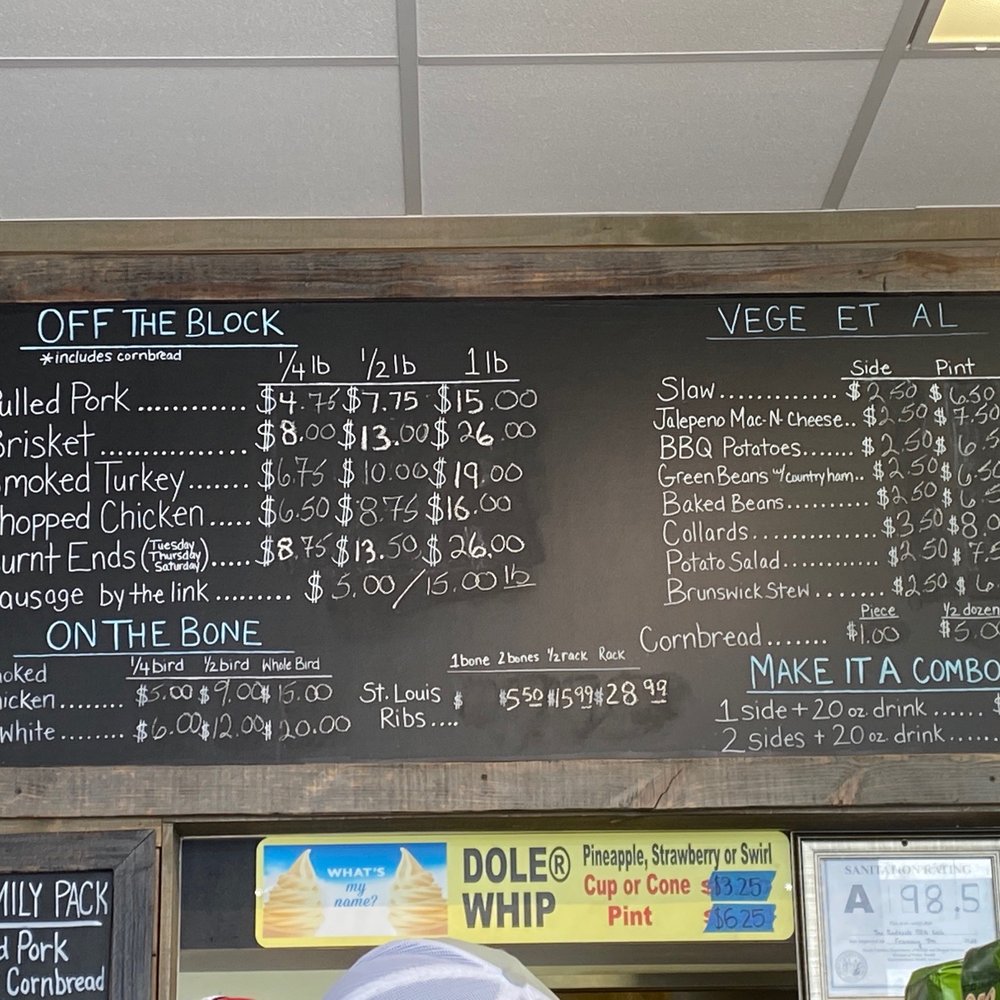 OFF THE BLOCK
*includes cornbread
1/4 lb 1/2 lb 1 lb
ulled Pork ............ $4.75 $7.75 $15.00
Brisket ................. $8.00 $13.00 $26.00
moked Turkey....... $6.75 $10.00 $19.00
hopped Chicken..... $6.50 $8.75 $16.00
urnt Ends (Tuesday Thursday Saturday)..... $8.75 $13.50 $26.00
ausage by the link ......... $5.00/15.00 lb
ON THE BONE
1/4 bird 1/2 bird Whole Bird
oked
icken........ $5.00 $9.00 $15.00
White........ $6.00 $12.00 $20.00
1 bone 2 bones 1/2 rack Rack
St. Louis
Ribs.... $ $5.50 $15.99 $28.99
VEGE ET AL
Side Pint
Slaw............... $2.50 $6.50
Jalepeno Mac-N-Cheese.. $2.50 $7.50
BBQ Potatoes....... $2.50 $6.5
Green Beans w/country ham.. $2.50 $6.50
Baked Beans.......... $2.50 $6
Collards.............. $3.50 $8.0
Potato Salad........... $2.50 $7.5
Brunswick Stew....... $2.50 $6
Piece 1/2 dozen
Cornbread....... $1.00 $5.0
MAKE IT A COMBO
1 side + 20 oz. drink...... $
2 sides + 20 oz. drink.....
MILY PACK
d Pork
Cornbread
WHAT'S
my
name?
DOLE®
WHIP
Pineapple, Strawberry or Swirl
Cup or Cone $3.25
Pint $6.25
SANITATION RATING
A 98.5